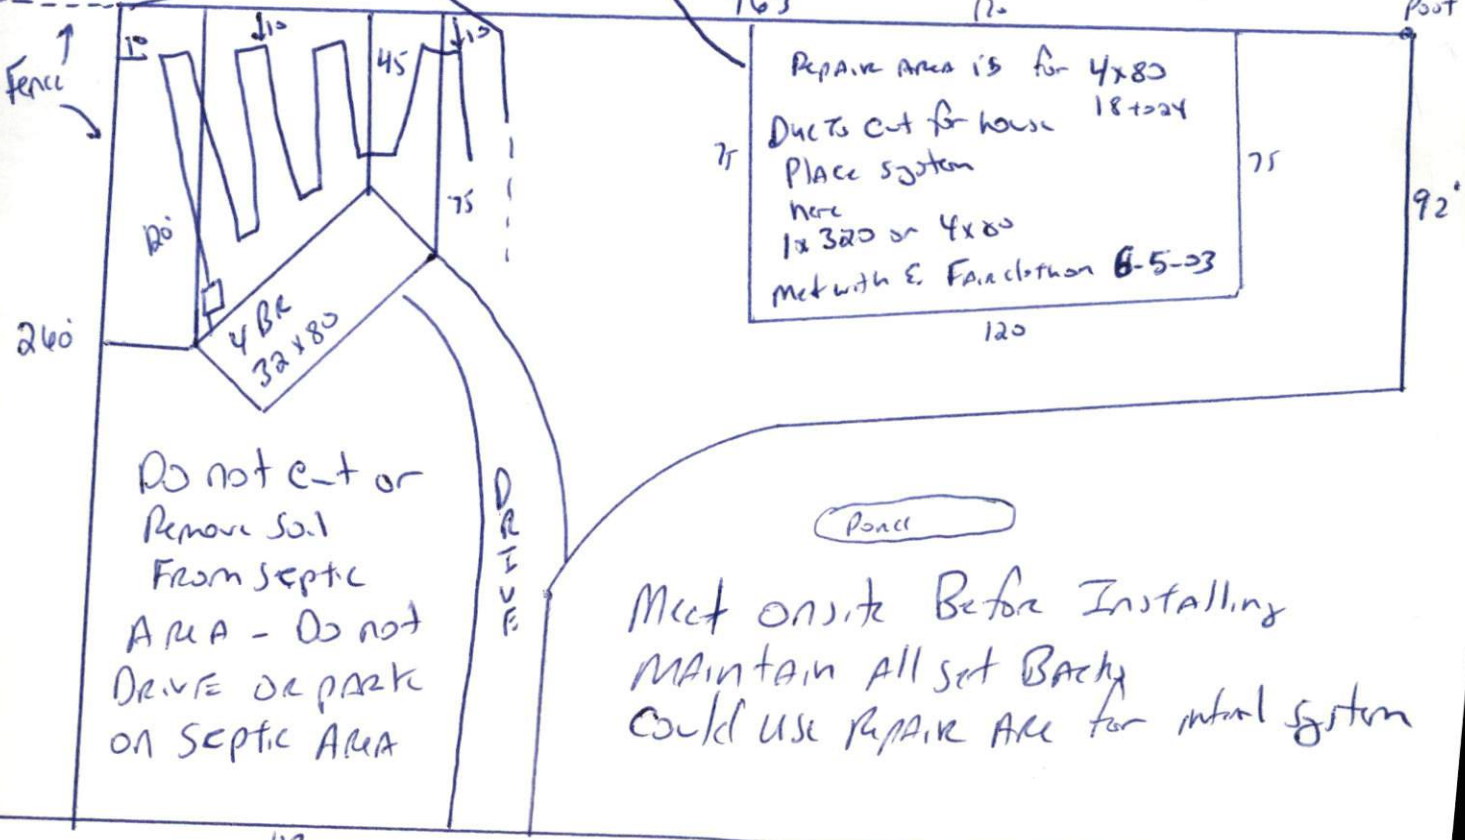 163
Post
Fence
10
10
45
10
Repair Area is for 4x80
18 to 24
Due to cut for house
Place system
here
1x 320 or 4x80
Met with E. Fairclothon 6-5-03
75
75
92'
120'
75
120
240'
4 BR
32 x 80
DRIVE
Do not cut or
Remove Soil
From Septic
AREA - Do not
DRIVE OR PARK
on Septic AREA
Pond
Meet onsite Before Installing
MAintAin All set BACKs
Could use RepAIR ARE for initial system